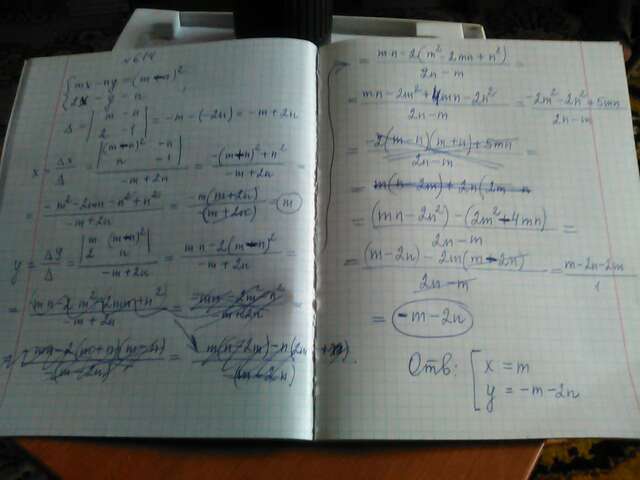 № 674
{ mx - ny = (m - n)²
2x - y = n ;
Δ = | m - n
2 - 1 | = - m - (- 2n) = - m + 2n
x = Δx / Δ = | (m - n)² - n
n - 1 | / (- m + 2n) = (-(m - n)² + n²) / (- m + 2n) =
= (- m² - 2mn - n² + n²) / (- m + 2n) = - m(m + 2n) / (m + 2n) = m
y = Δy / Δ = | m (m - n)²
2 n | / (- m + 2n) = (mn - 2(m - n)²) / (- m + 2n) =
= (mn - 2m² - 2mn + n²) / (- m + 2n) =
= (mn - 2(m² - 2mn + n²)) / (2n - m) =
= (mn - 2m² + 4mn - 2n²) / (2n - m) = (- 2m² - 2n² + 5mn) / (2n - m)
= (2(m - n)(m + n) + 5mn) / (2n - m) =
= m(n - 2m) + 2n(2m - n
= ((mn - 2n²) - (2m² + 4mn)) / (2n - m) =
= ((m - 2n) - 2m(m - 2n)) / (2n - m) = (m - 2n - 2m) / 1
= - m - 2n
Отв: [ x = m
y = - m - 2n